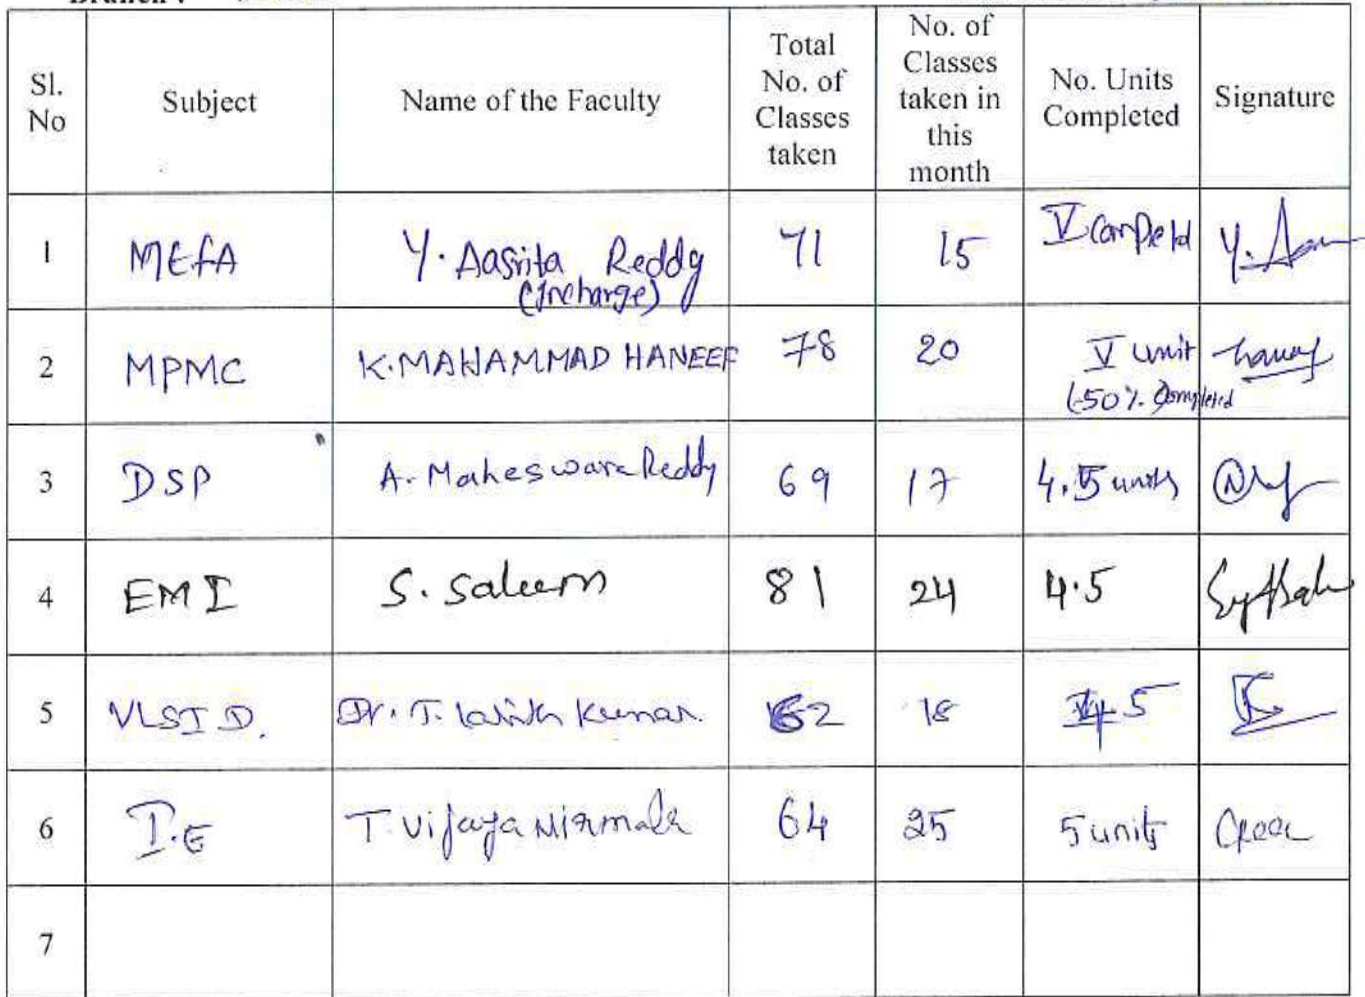 Branch :
Sl. No Subject Name of the Faculty Total No. of Classes taken No. of Classes taken in this month No. Units Completed Signature
1 MEfA Y. Aasrita Reddy (Incharge) 71 15 V Completd
2 MPMC K. MAHAMMAD HANEEF 78 20 V Unit (50% Completed
3 DSP A. Maheswara Reddy 69 17 4.5 units
4 EMI S. Saleem 81 24 4.5
5 VLSI D. Dr. T. Lalith Kumar. 62 18 4.5
6 I.E T. Vijaya Nirmala 64 25 5 units
7